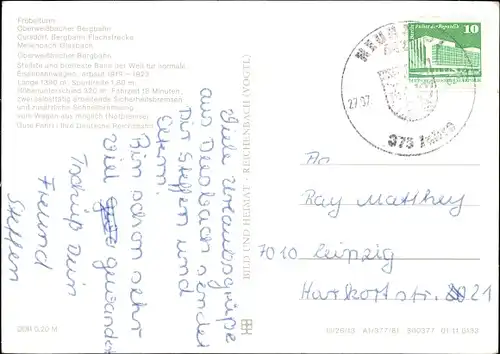 Fröbelturm
Oberweißbacher Bergbahn
Cursdorf, Bergbahn Flachstrecke
Mellenbach-Glasbach
Oberweißbacher Bergbahn
Steilste und breiteste Bahn der Welt für normale
Eisenbahnwagen, erbaut 1919 - 1923
Länge 1390 m · Spurbreite 1,80 m
Höhenunterschied 320 m · Fahrzeit 18 Minuten
zwei selbsttätig arbeitende Sicherheitsbremsen
und zusätzliche Schnellbremsung
vom Wagen aus möglich (Notbremse)
Gute Fahrt! Ihre Deutsche Reichsbahn
Viele Urlaubsgrüße
aus Deesbach sendet
Dir Steffen und
Eltern.
Bin schon sehr
viel gewandert
Tschüß Dein
Freund
Steffen
BILD UND HEIMAT · REICHENBACH (VOGTL)
DDR 0,20 M
10
27.07.
375 Jahre
An
Ray Matthey
7010 Leipzig
Harkortstr. 21
A1/377/81 300377 01 11 0132